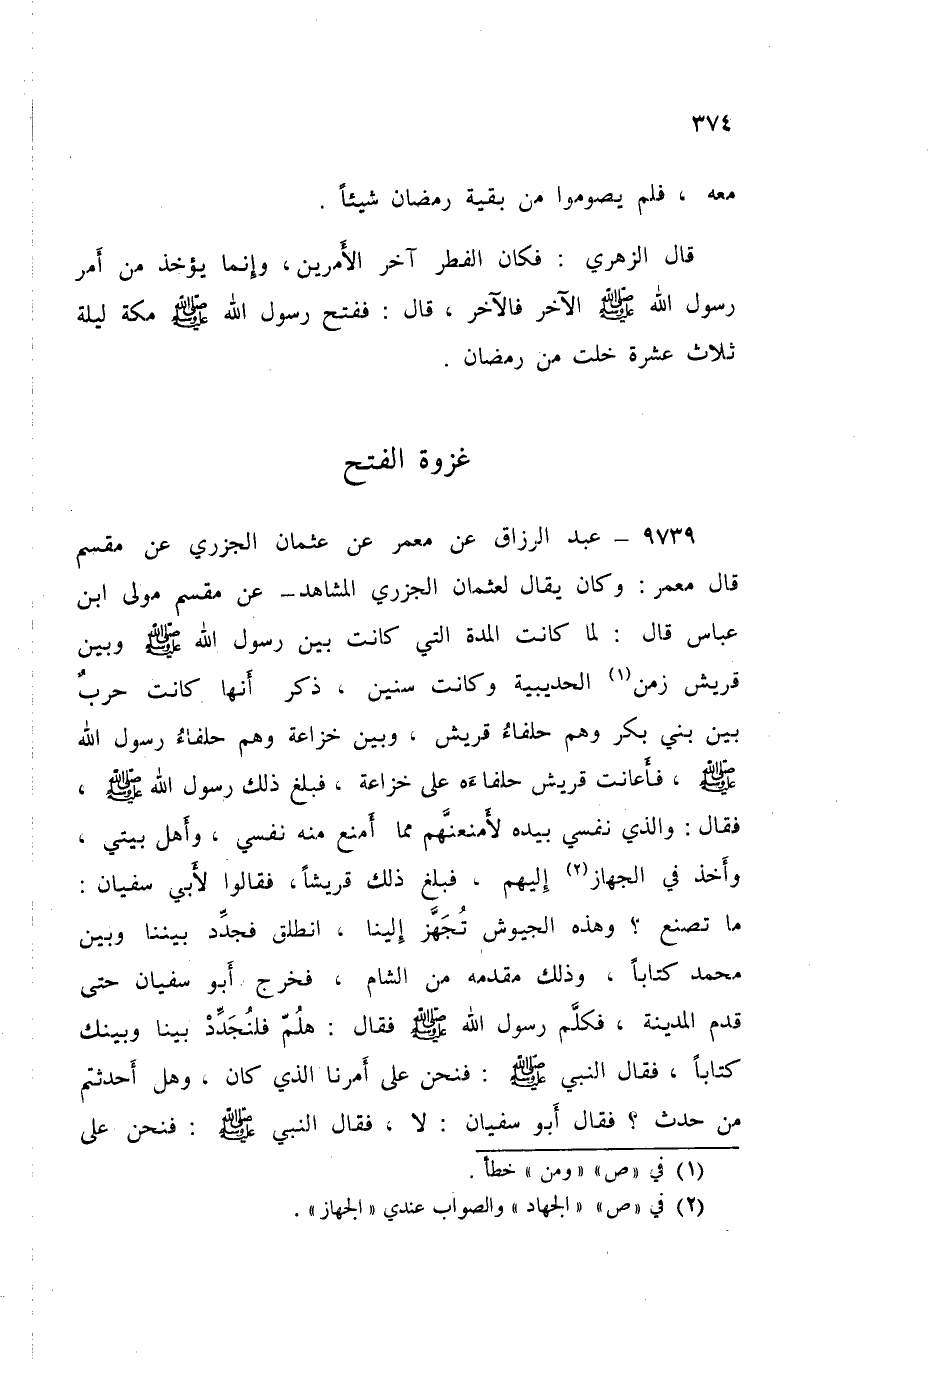 ٣٧٤
معه ، فلم يصوموا من بقية رمضان شيئاً .
قال الزهري : فكان الفطر آخر الأَمرين، وإِنما يؤخذ من أَمر
رسول الله ﷺ الآخر فالآخر ، قال : ففتح رسول الله ﷺ مكة ليلة
ثلاث عشرة خلت من رمضان .
غزوة الفتح
٩٧٣٩ – عبد الرزاق عن معمر عن عثمان الجزري عن مقسم
قال معمر : وكان يقال لعثمان الجزري المشاهد– عن مقسم مولى ابن
عباس قال : لما كانت المدة التي كانت بين رسول الله ﷺ وبين
قريش زمن(١) الحديبية وكانت سنين ، ذكر أَنها كانت حربٌ
بين بني بكر وهم حلفاءُ قريش ، وبين خزاعة وهم حلفاءُ رسول الله
ﷺ ، فأَعانت قريش حلفاءَه على خزاعة ، فبلغ ذلك رسول الله ﷺ ،
فقال : والذي نفسي بيده لأَمنعنَّهم مما أَمنع منه نفسي ، وأَهل بيتي ،
وأَخذ في الجهاز(٢) إِليهم ، فبلغ ذلك قريشاً، فقالوا لأَبي سفيان :
ما تصنع ؟ وهذه الجيوش تُجَهَّز إِلينا ، انطلق فجدِّد بيننا وبين
محمد كتاباً ، وذلك مقدمه من الشام ، فخرج أَبو سفيان حتى
قدم المدينة ، فكلَّم رسول الله ﷺ فقال : هلُمّ فلنُجَدِّدْ بينا وبينك
كتاباً ، فقال النبي ﷺ : فنحن على أَمرنا الذي كان ، وهل أَحدثتم
من حدث ؟ فقال أَبو سفيان : لا ، فقال النبي ﷺ : فنحن على
(١) في «ص» «ومن» خطأ .
(٢) في «ص» «الجهاد» والصواب عندي «الجهاز» .